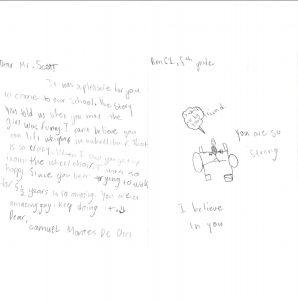 Dear Mr. Scott
It was a pleasure for you
to come to our school. The story
you told us when you met the
girl was funny. I can't believe you
can lift weights in wheelchair. That
is so crazy. When I saw you get up
from the wheelchair I was so
happy. Since you been trying to walk
for 5½ years is so amazing. You are
amazing guy. Keep doing it.
Dear,
Samuel Montes De Oca
Rm C1, 5th grade
You are so
strong
I believe
in you